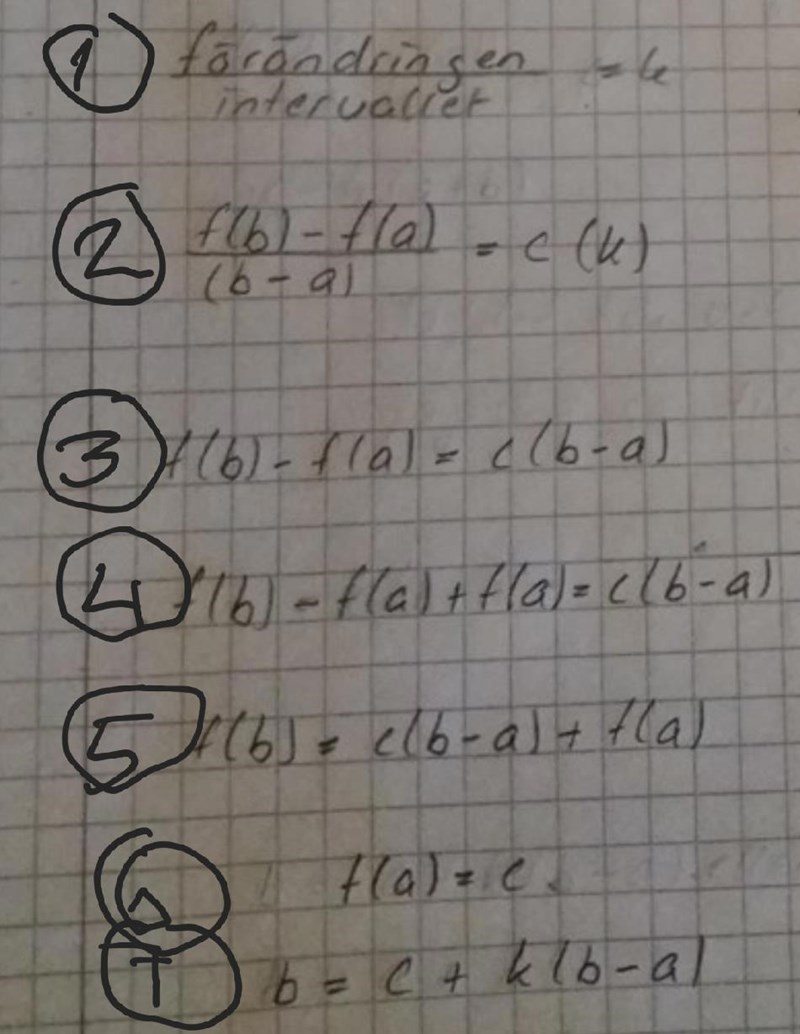 1 förändringen = k
intervallet
2 f(b) - f(a) = c (k)
(b - a)
3 f(b) - f(a) = c(b-a)
4 f(b) - f(a) + f(a) = c(b-a)
5 f(b) = c(b-a) + f(a)
6 f(a) = c
7 b = c + k(b-a)